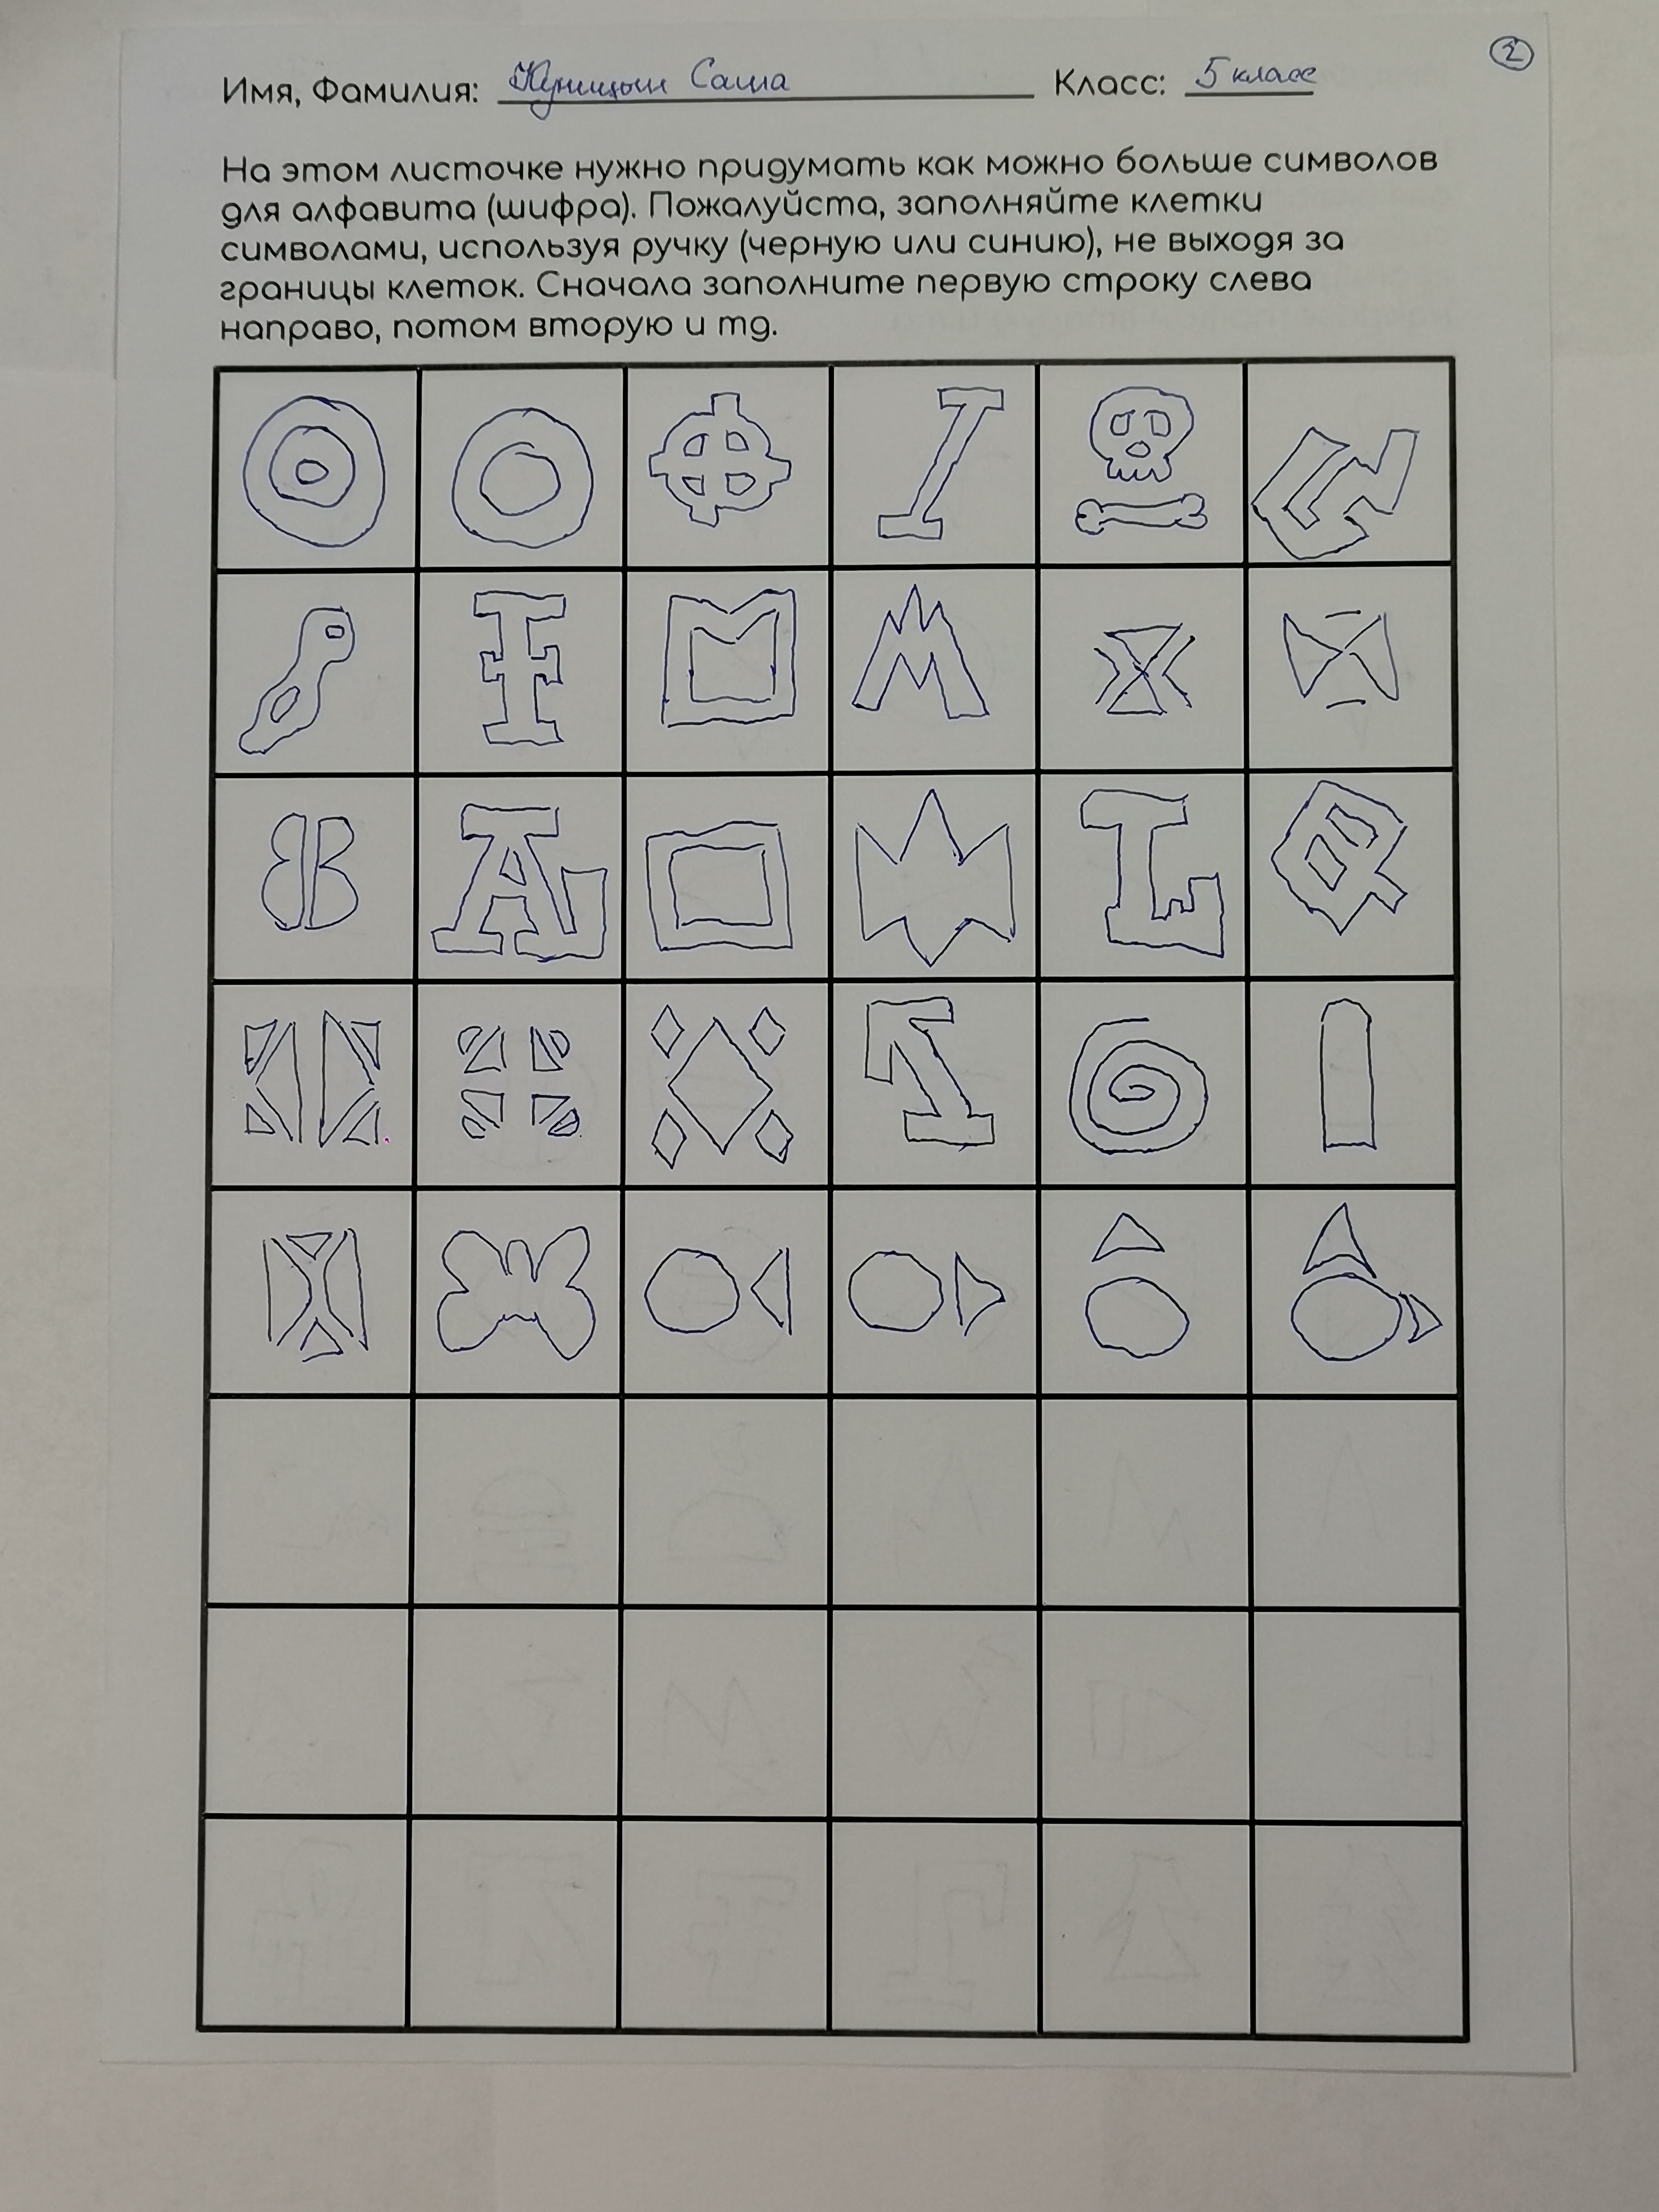 2
Имя, Фамилия: Куницын Саша Класс: 5 класс
На этом листочке нужно придумать как можно больше символов
для алфавита (шифра). Пожалуйста, заполняйте клетки
символами, используя ручку (черную или синию), не выходя за
границы клеток. Сначала заполните первую строку слева
направо, потом вторую и тд.